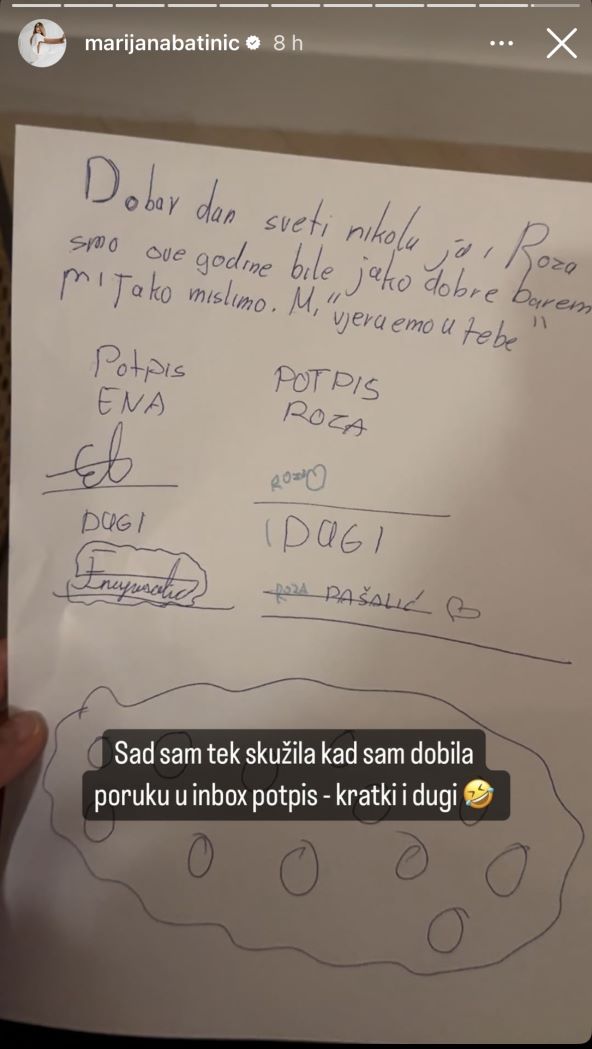 marijanabatinic 8 h
Dobar dan sveti nikola ja i Roza
smo ove godine bile jako dobre barem
mi tako mislimo. Mi "vjeruemo u tebe"
Potpis POTPIS
ENA ROZA
ROZA
DUGI DUGI
ROZA PAŠALIĆ
Sad sam tek skužila kad sam dobila
poruku u inbox potpis - kratki i dugi 🤣